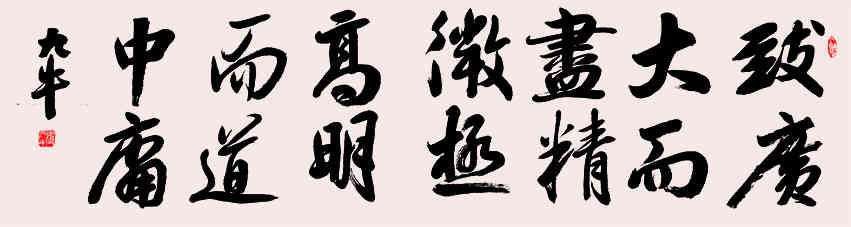 致廣
大而
盡精
微極
高明
而道
中庸
九牛